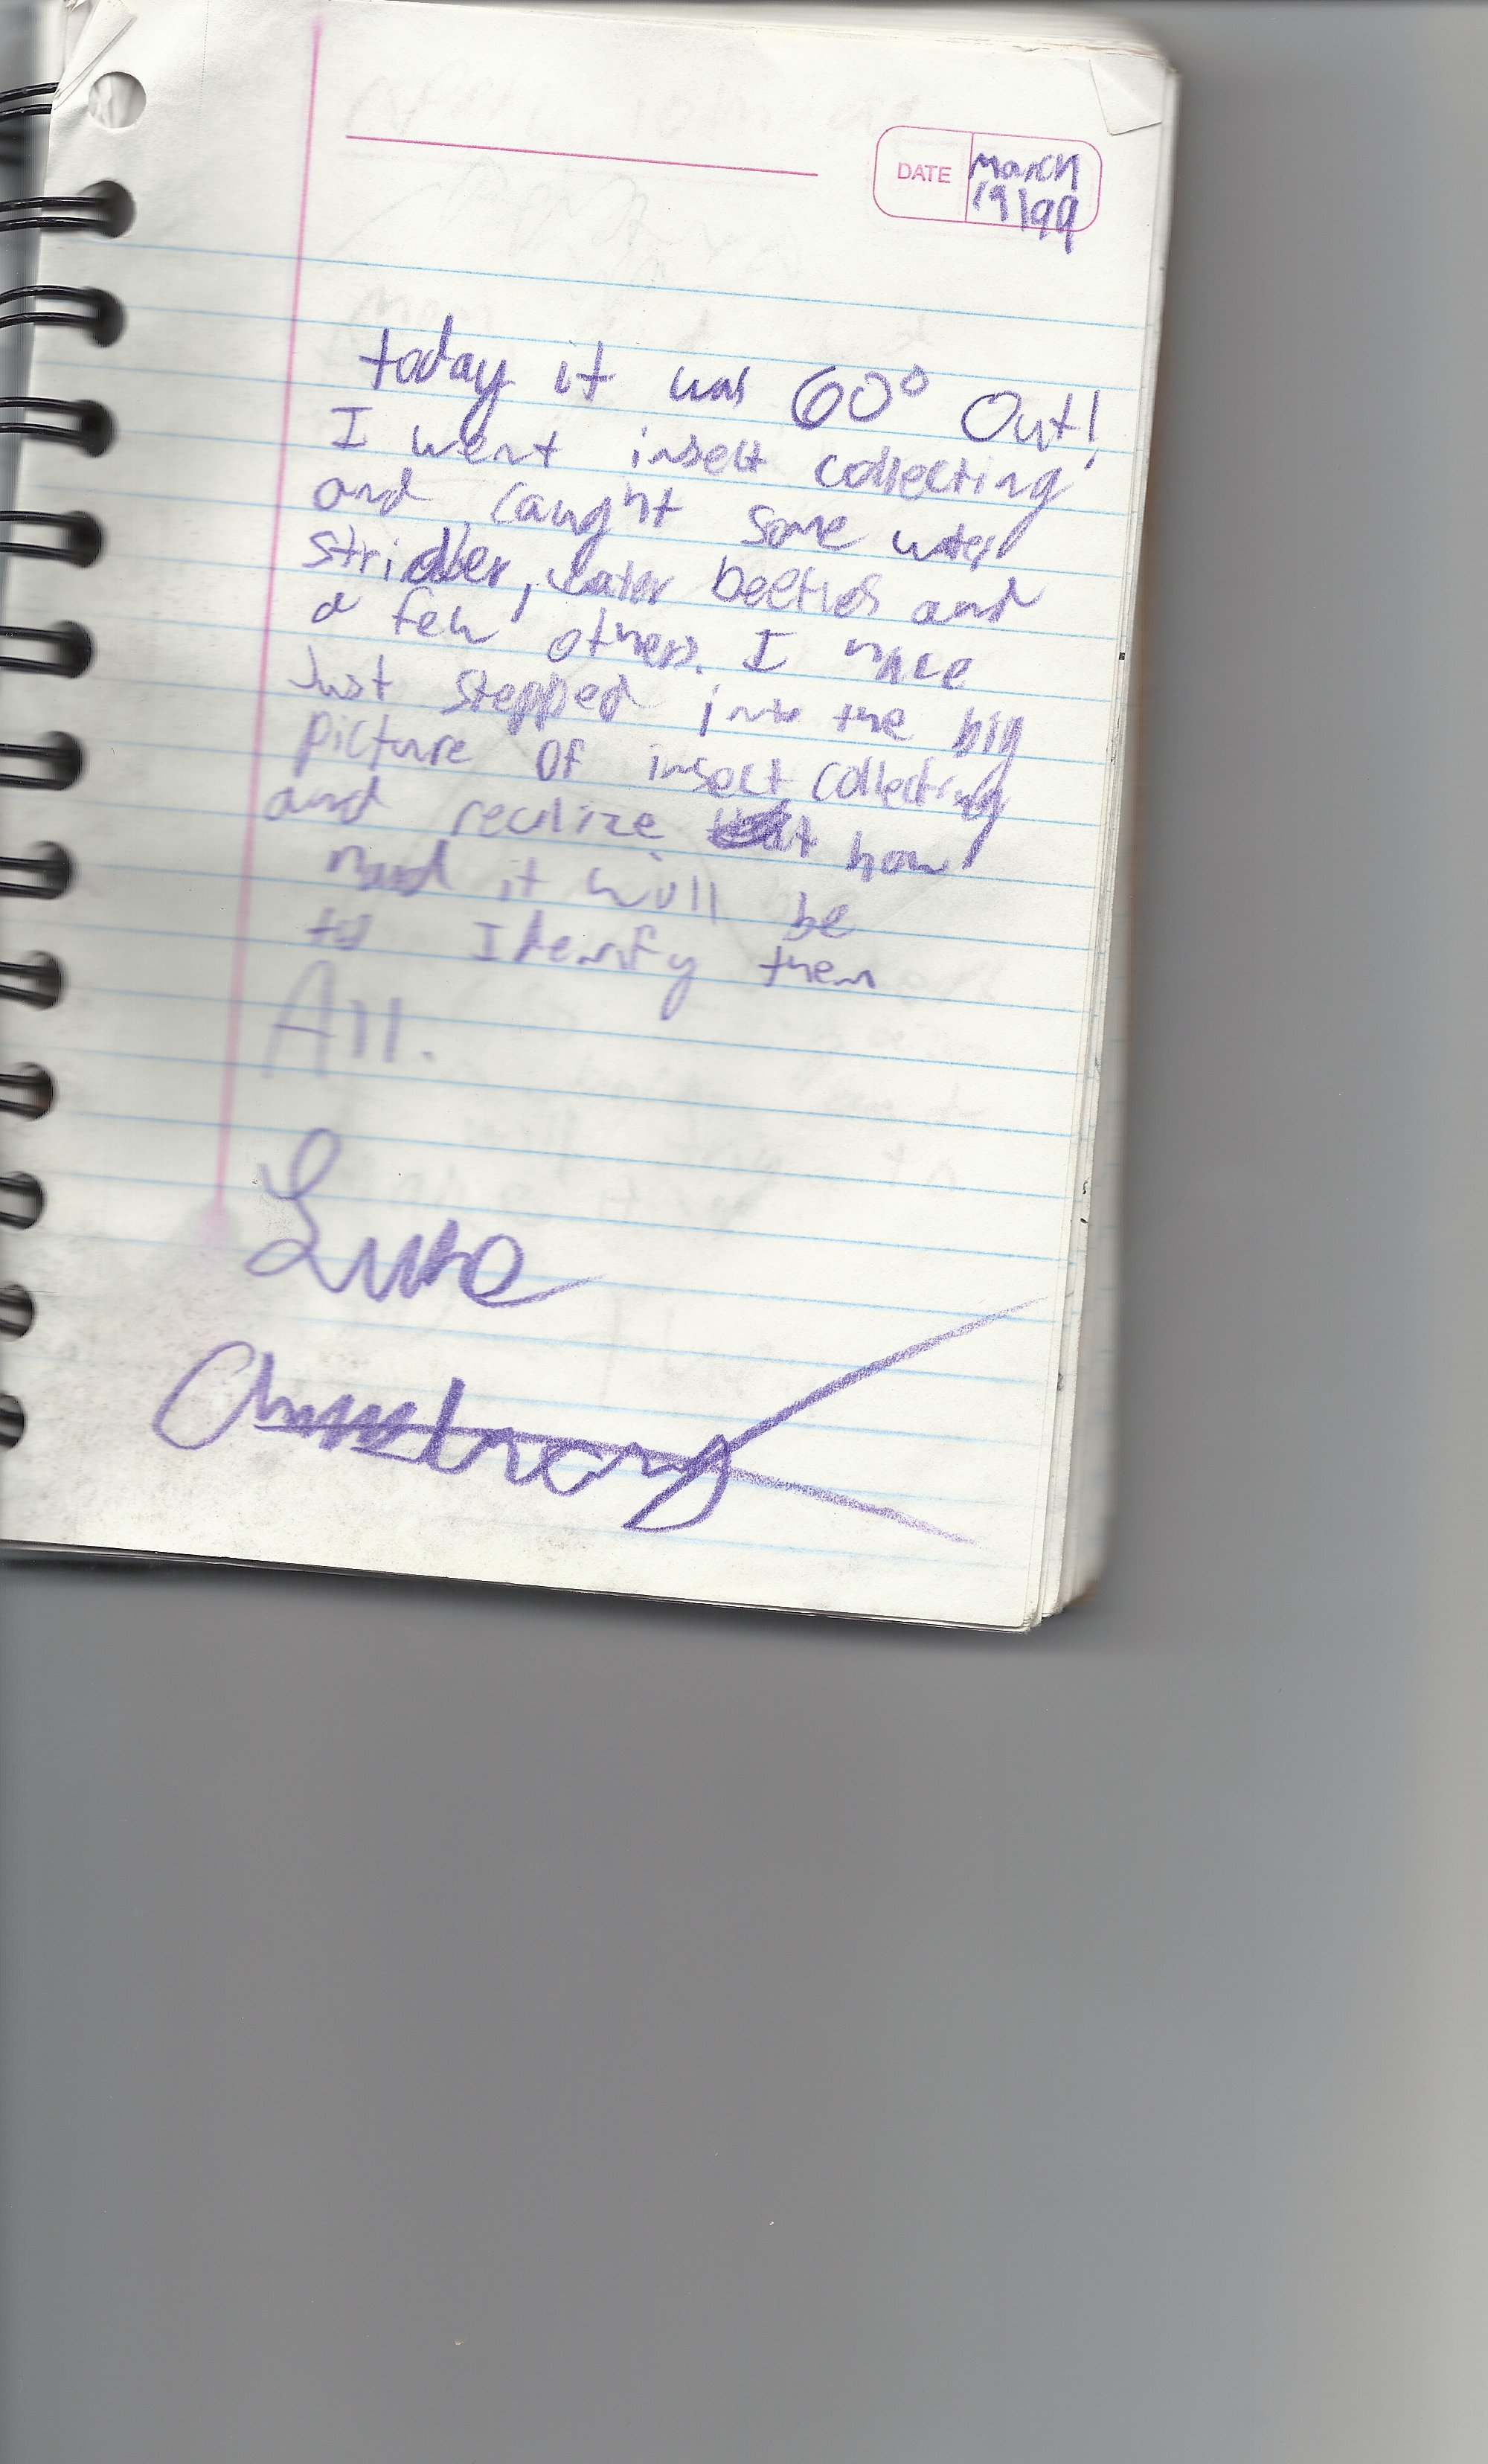 DATE March
19/99
today it was 60° Out!
I went insect collecting
and caught some water
stridder, water beetles and
a few others. I have
Just stepped into the big
picture of insect collecting
and realize how
hard it will be
to Identify them
All.
Luke